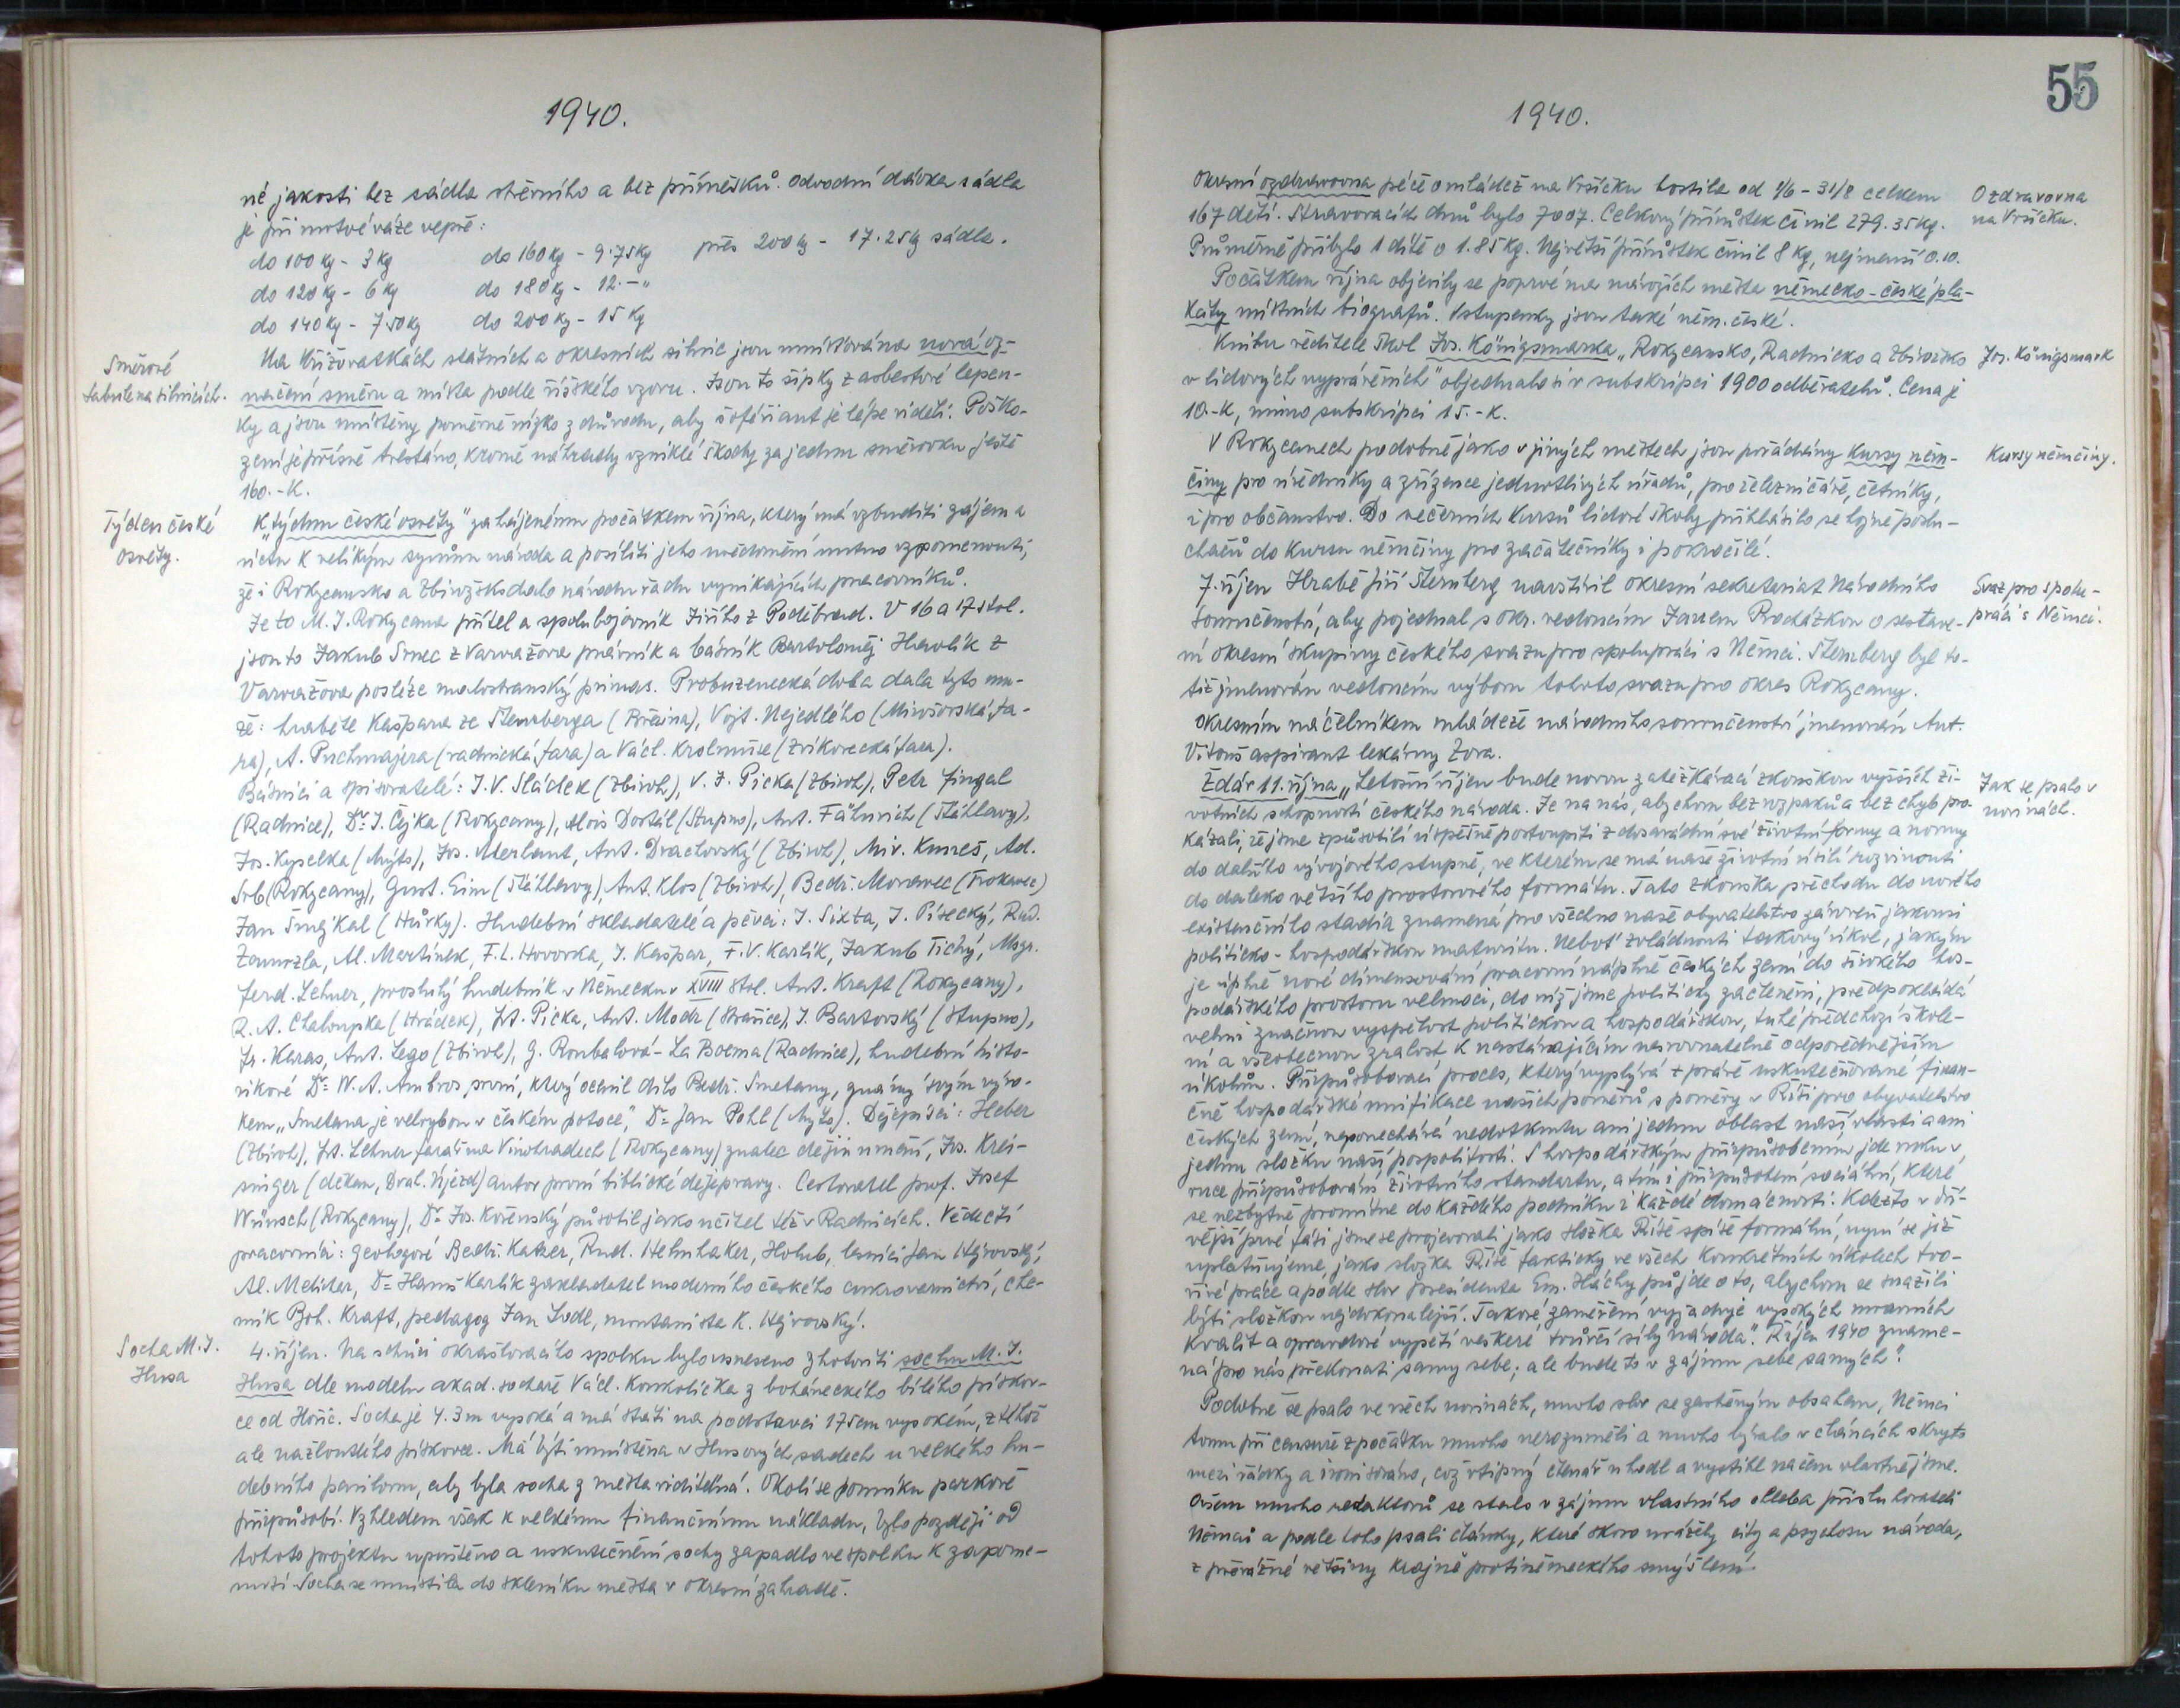 1940.
né jakosti bez sádla střevního a bez přímešků. Odvodní dávka sádla
je při mrtvé váze vepře:
do 100 kg - 3 kg do 160 kg - 9.75 kg přes 200 kg - 17.25 kg sádla.
do 120 kg - 6 kg do 180 kg - 12.- "
do 140 kg - 7.50 kg do 200 kg - 15 kg
Směrové
tabule na silnicích.
Na křižovatkách státních a okresních silnic jsou umísťována nová oz-
načení směru a místa podle říšského vzoru. Jsou to šipky z asbestové lepen-
ky a jsou umístěny poměrně nízko z důvodu, aby šoféři aut je lépe viděli. Poško-
zení je přísně trestáno, kromě náhrady vzniklé škody za jednu směrovku ještě
160.-K.
Týden české
osvěty.
K „týdnu české osvěty" zahájenému počátkem října, který má vzbuditi zájem a
úctu k velikým synům národa a posíliti jeho uvědomění nutno vzpomenouti,
že i Rokycansko a Zbirožsko dalo národu řadu vynikajících pracovníků.
Je to M. J. Rokycana přítel a spolubojovník Jiřího z Poděbrad. V 16 a 17 stol.
jsou to Jakub Srnec z Varvažova právník a básník Bartoloměj Havlík z
Varvažova posléze malostranský primas. Probuzenecká doba dala tyto mu-
že: hraběte Kašpara ze Šternberga (Březina), Vojt. Nejedlého (Mirošovská fa-
ra), A. Puchmajera (radnická fara) a Václ. Krolmuse (Zvíkovecká fara).
Básníci a spisovatelé: J. V. Sládek (Zbiroh), V. F. Picka (Zbiroh), Petr Fingal
(Radnice), Dr. J. Čejka (Rokycany), Alois Dostál (Stupno), Ant. Fähnrich (Štáhlavy),
Jos. Kyselka (Mýto), Jos. Merhaut, Ant. Drachovský (Zbiroh), Mir. Kureš, Ad.
Srb (Rokycany), Gust. Eim (Štáhlavy), Ant. Klos (Zbiroh), Bedř. Moravec (Trokavec)
Jan Šmejkal (Hůrky). Hudební skladatelé a pěvci: J. Sixta, J. Písecký, Rud.
Zamrzla, Al. Martínek, F. L. Hovorka, J. Kašpar, F. V. Karlík, Jakub Tichý, Msgr.
Ferd. Lehner, proslulý hudebník v Německu v XVIII stol. Ant. Kraft (Rokycany),
R. A. Chaloupka (Hrádek), Fr. Picka, Ant. Modr (Strašice), J. Bartovský (Stupno),
Fr. Karas, Ant. Lego (Zbiroh), G. Roubalová - La Boema (Radnice), hudební histo-
rikové Dr. W. A. Ambros první, který ocenil dílo Bedř. Smetany, známý svým výro-
kem „Smetana je velrybou v českém potoce," Dr. Jan Pohl (Mýto). Dějepisci: Heber
(Zbiroh), Ft. Lehner farář na Vinohradech (Rokycany) znalec dějin umění, Jos. Krei-
singer (děkan, Dral. Újezd) autor první biblické dějepravy. Cestovatel prof. Josef
Wünsch (Rokycany), Dr. Jos. Kořenský působil jako učitel též v Radnicích. Vědečtí
pracovníci: geologové Bedř. Katzer, Rud. Helmhaker, Holub, lesníci Jan Hejrovský,
Al. Melichar, Dr. Hanuš Karlík zakladatel moderního českého cukrovarnictví, che-
mik Boh. Kraft, pedagog Jan Sodl, montanista K. Hejrovský.
Socha M. J.
Husa
4. říjen. Na schůzi okrašlovacího spolku bylo usneseno zhotoviti sochu M. J.
Husa dle modelu akad. sochaře Václ. Konkolíčka z boháneckého bílého pískov-
ce od Hořic. Socha je 4.3 m vysoká a má státi na podstavci 175 cm vysokém, z téhož
ale nažloutlého pískovce. Má býti umístěna v Husových sadech u velkého hu-
debního pavilonu, aby byla socha z města viditelná. Okolí se pomníku parkově
přizpůsobí. Vzhledem však k velkému finančnímu nákladu, bylo později od
tohoto projektu upuštěno a uskutečnění sochy zapadlo ve spolku k zapome-
nutí. Socha se umístila do skleníku města v okresní zahradě.
55
1940.
Okresní ozdravovna péče o mládež na Vršíčku hostila od 1/6 - 31/8 celkem
167 dětí. Stravovacích dnů bylo 7007. Celkový přírůstek činil 279.35 kg.
Průměrně přibylo 1 dítě o 1.85 kg. Největší přírůstek činil 8 kg, nejmenší 0.10.
Ozdravovna
na Vršíčku.
Počátkem října objevily se poprvé na nárožích města německo-české pla-
káty místních biografů. Vstupenky jsou také něm. české.
Knihu ředitele škol Jos. Königsmarka „Rokycansko, Radnicko a Zbirožsko
v lidových vyprávěních" objednalo si v subskripci 1900 odběratelů. Cena je
10.-K, mimo subskripci 15.-K.
Jos. Königsmark
V Rokycanech podobně jako v jiných městech jsou pořádány kursy něm-
činy pro úředníky a zřízence jednotlivých úřadů, pro železničáře, četníky,
i pro občanstvo. Do večerních kursů lidové školy přihlásilo se hojně poslu-
chačů do kursu němčiny pro začátečníky i pokročilé.
Kursy němčiny.
7. říjen Hrabě Jiří Šternberg navštívil okresní sekretariat Národního
Souručenství, aby pojednal s okr. vedoucím Janem Procházkou o sestave-
ní okresní skupiny českého svazu pro spolupráci s Němci. Šternberg byl to-
tiž jmenován vedoucím výboru tohoto svazu pro okres Rokycany.
Svaz pro spolu-
práci s Němci.
Okresním náčelníkem mládeže národního souručenství jmenován Ant.
Vitouš aspirant lekárny Zora.
Zdár 11. října „Letošní říjen bude novou zatěžkávací zkouškou vyšších ži-
votních schopností českého národa. Je na nás, abychom bez rozpaků a bez chyb pro-
kázali, že jsme způsobilí úspěšně postoupiti z dosavadní své životní formy a normy
do dalšího vývojového stupně, ve kterém se má naše životní úsilí rozvinouti
do daleko většího prostorového formátu. Tato zkouška přechodu do nového
existenčního stadia znamená pro všechno naše obyvatelstvo zároveň jakousi
politicko-hospodářskou maturitu. Neboť zvládnouti takový úkol, jakým
je úplně nové dimensování pracovní náplně českých zemí do širokého hos-
podářského prostoru velmoci, do níž jsme politicky začleněni, předpokládá
velmi značnou vyspělost politickou a hospodářskou, tuhé předchozí škole-
ní a všeobecnou zralost k nastávajícím nesrovnatelně odpovědnějším
úkolům. Přizpůsobovací proces, který vyplývá z právě uskutečňované finan-
čně hospodářské unifikace našich poměrů s poměry v Říši pro obyvatelstvo
českých zemí, neponechává nedotknutu ani jednu oblast naší vlasti a ani
jednu složku naší pospolitosti. S hospodářským přizpůsobením jde ruku v
ruce přizpůsobování životního standartu, a tím i přizpůsobení sociální, které
se nezbytně promítne do každého podniku i každé domácnosti. Kdežto v dří-
vější prvé fási jsme se projevovali jako složka Říše spíše formální, nyní se již
uplatňujeme, jako složka Říše fakticky ve všech konkretních úkolech tvo-
řivé práce a podle slov presidenta Em. Háchy půjde o to, abychom se snažili
býti složkou nejdokonalejší. Takové zaměření vyžaduje vysokých mravních
kvalit a opravdové vypětí veškeré tvůrčí síly národa." Říjen 1940 zname-
ná pro nás překonati samy sebe; ale bude to v zájmu sebe samých".
Jak se psalo v
novinách.
Podobně se psalo ve všech novinách, mnoho slov se zastřeným obsahem, Němci
tomu při censuře z počátku mnoho nerozuměli a mnoho bývalo v článcích skryto
mezi řádky a ironisováno, což vtipný čtenář uhodl a vystihl na čem vlastně jsme.
Ovšem mnoho redaktorů se stalo v zájmu vlastního chleba přisluhovateli
Němců a podle toho psali články, které skoro urážely city a psychosu národa,
z převážné většiny krajně protiněmeckého smýšlení.